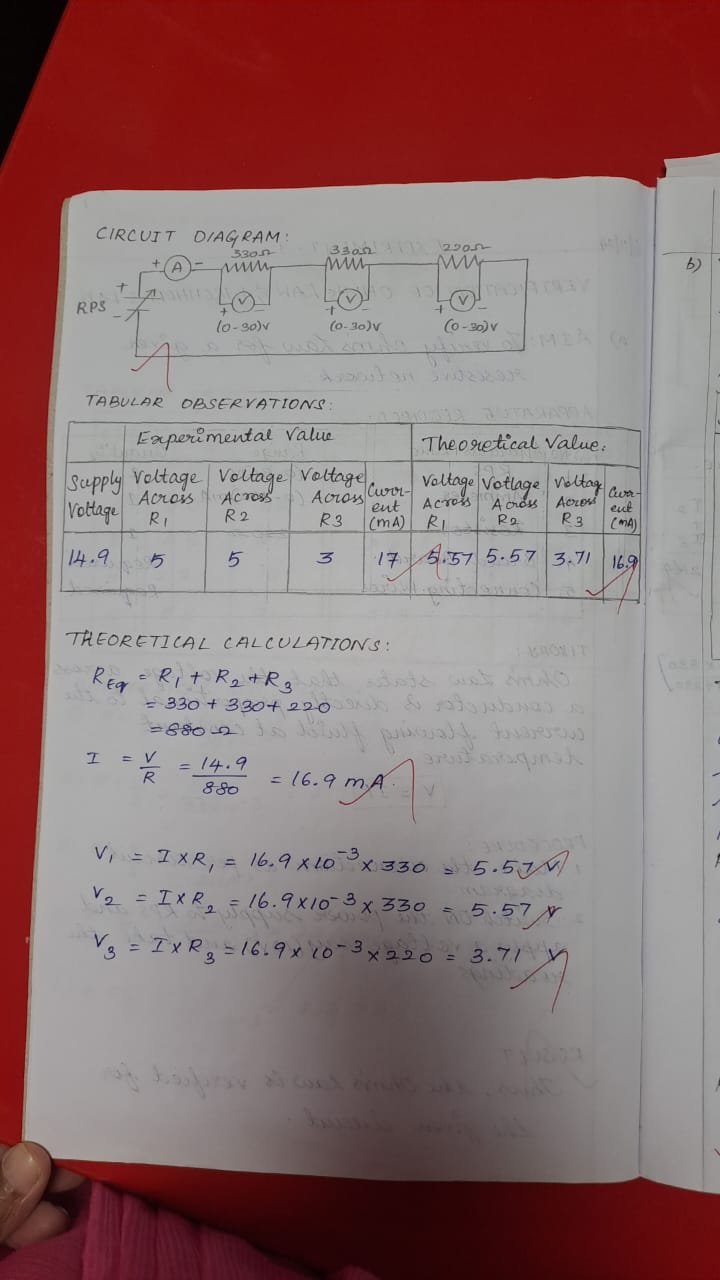 CIRCUIT DIAGRAM:
330Ω 330Ω 220Ω
+ A -
RPS + -
+ V + V + V
(0-30)V (0-30)V (0-30)V
TABULAR OBSERVATIONS:
Experimental Value Theoretical Value.
Supply Voltage Voltage Across R1 Voltage Across R2 Voltage Across R3 Curr-ent (mA) Voltage Across R1 Votlage Across R2 Voltag Across R3 Curr-ent (mA)
14.9 5 5 3 17 5.57 5.57 3.71 16.9
THEORETICAL CALCULATIONS:
REq = R1 + R2 + R3
= 330 + 330 + 220
= 880 Ω
I = V/R = 14.9/880 = 16.9 mA.
V1 = I x R1 = 16.9 x 10-3 x 330 = 5.57 V
V2 = I x R2 = 16.9 x 10-3 x 330 = 5.57 V
V3 = I x R3 = 16.9 x 10-3 x 220 = 3.71 V
b)